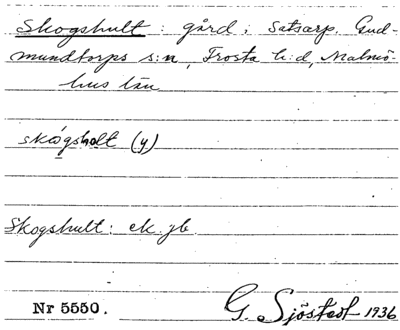 Skogshult : gård i Satsarp. Gud-
mundtorps s:n, Frosta h:d, Malmö-
hus län
skógshølt (y)
Skogshult: ek. jb
Nr 5550. G. Sjöstedt 1936